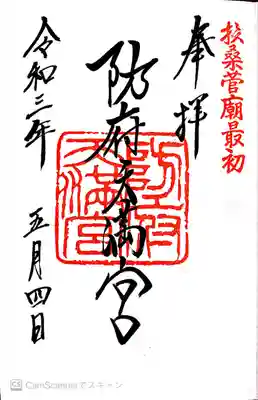 扶桑菅廟最初
奉拝
防府天満宮
防府天満宮
令和三年 五月四日
CS CamScannerでスキャン